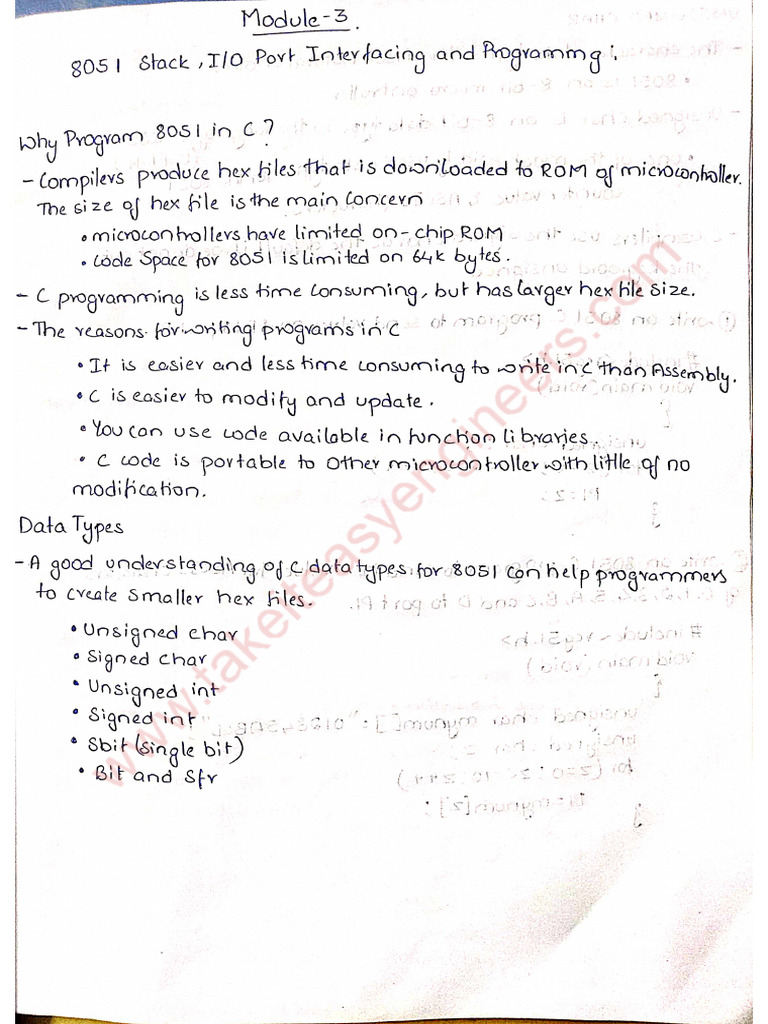 Module-3.
8051 Stack, I/O Port Interfacing and Programmng :
Why Program 8051 in C?
- Compilers produce hex files that is downloaded to ROM of microcontroller.
The size of hex file is the main concern
• microcontrollers have limited on-chip ROM
• code Space for 8051 is limited on 64k bytes.
- C programming is less time consuming, but has larger hex file size.
- The reasons for writing programs in C
• It is easier and less time consuming to write in C than Assembly.
• C is easier to modify and update.
• You can use code available in function libraries.
• C code is portable to other microcontroller with little of no
modification.
Data Types
- A good understanding of C data types for 8051 can help programmers
to create smaller hex files.
• Unsigned char
• Signed char
• Unsigned int
• Signed int
• Sbit (single bit)
• Bit and Sfr
www.takeiteasyengineers.com